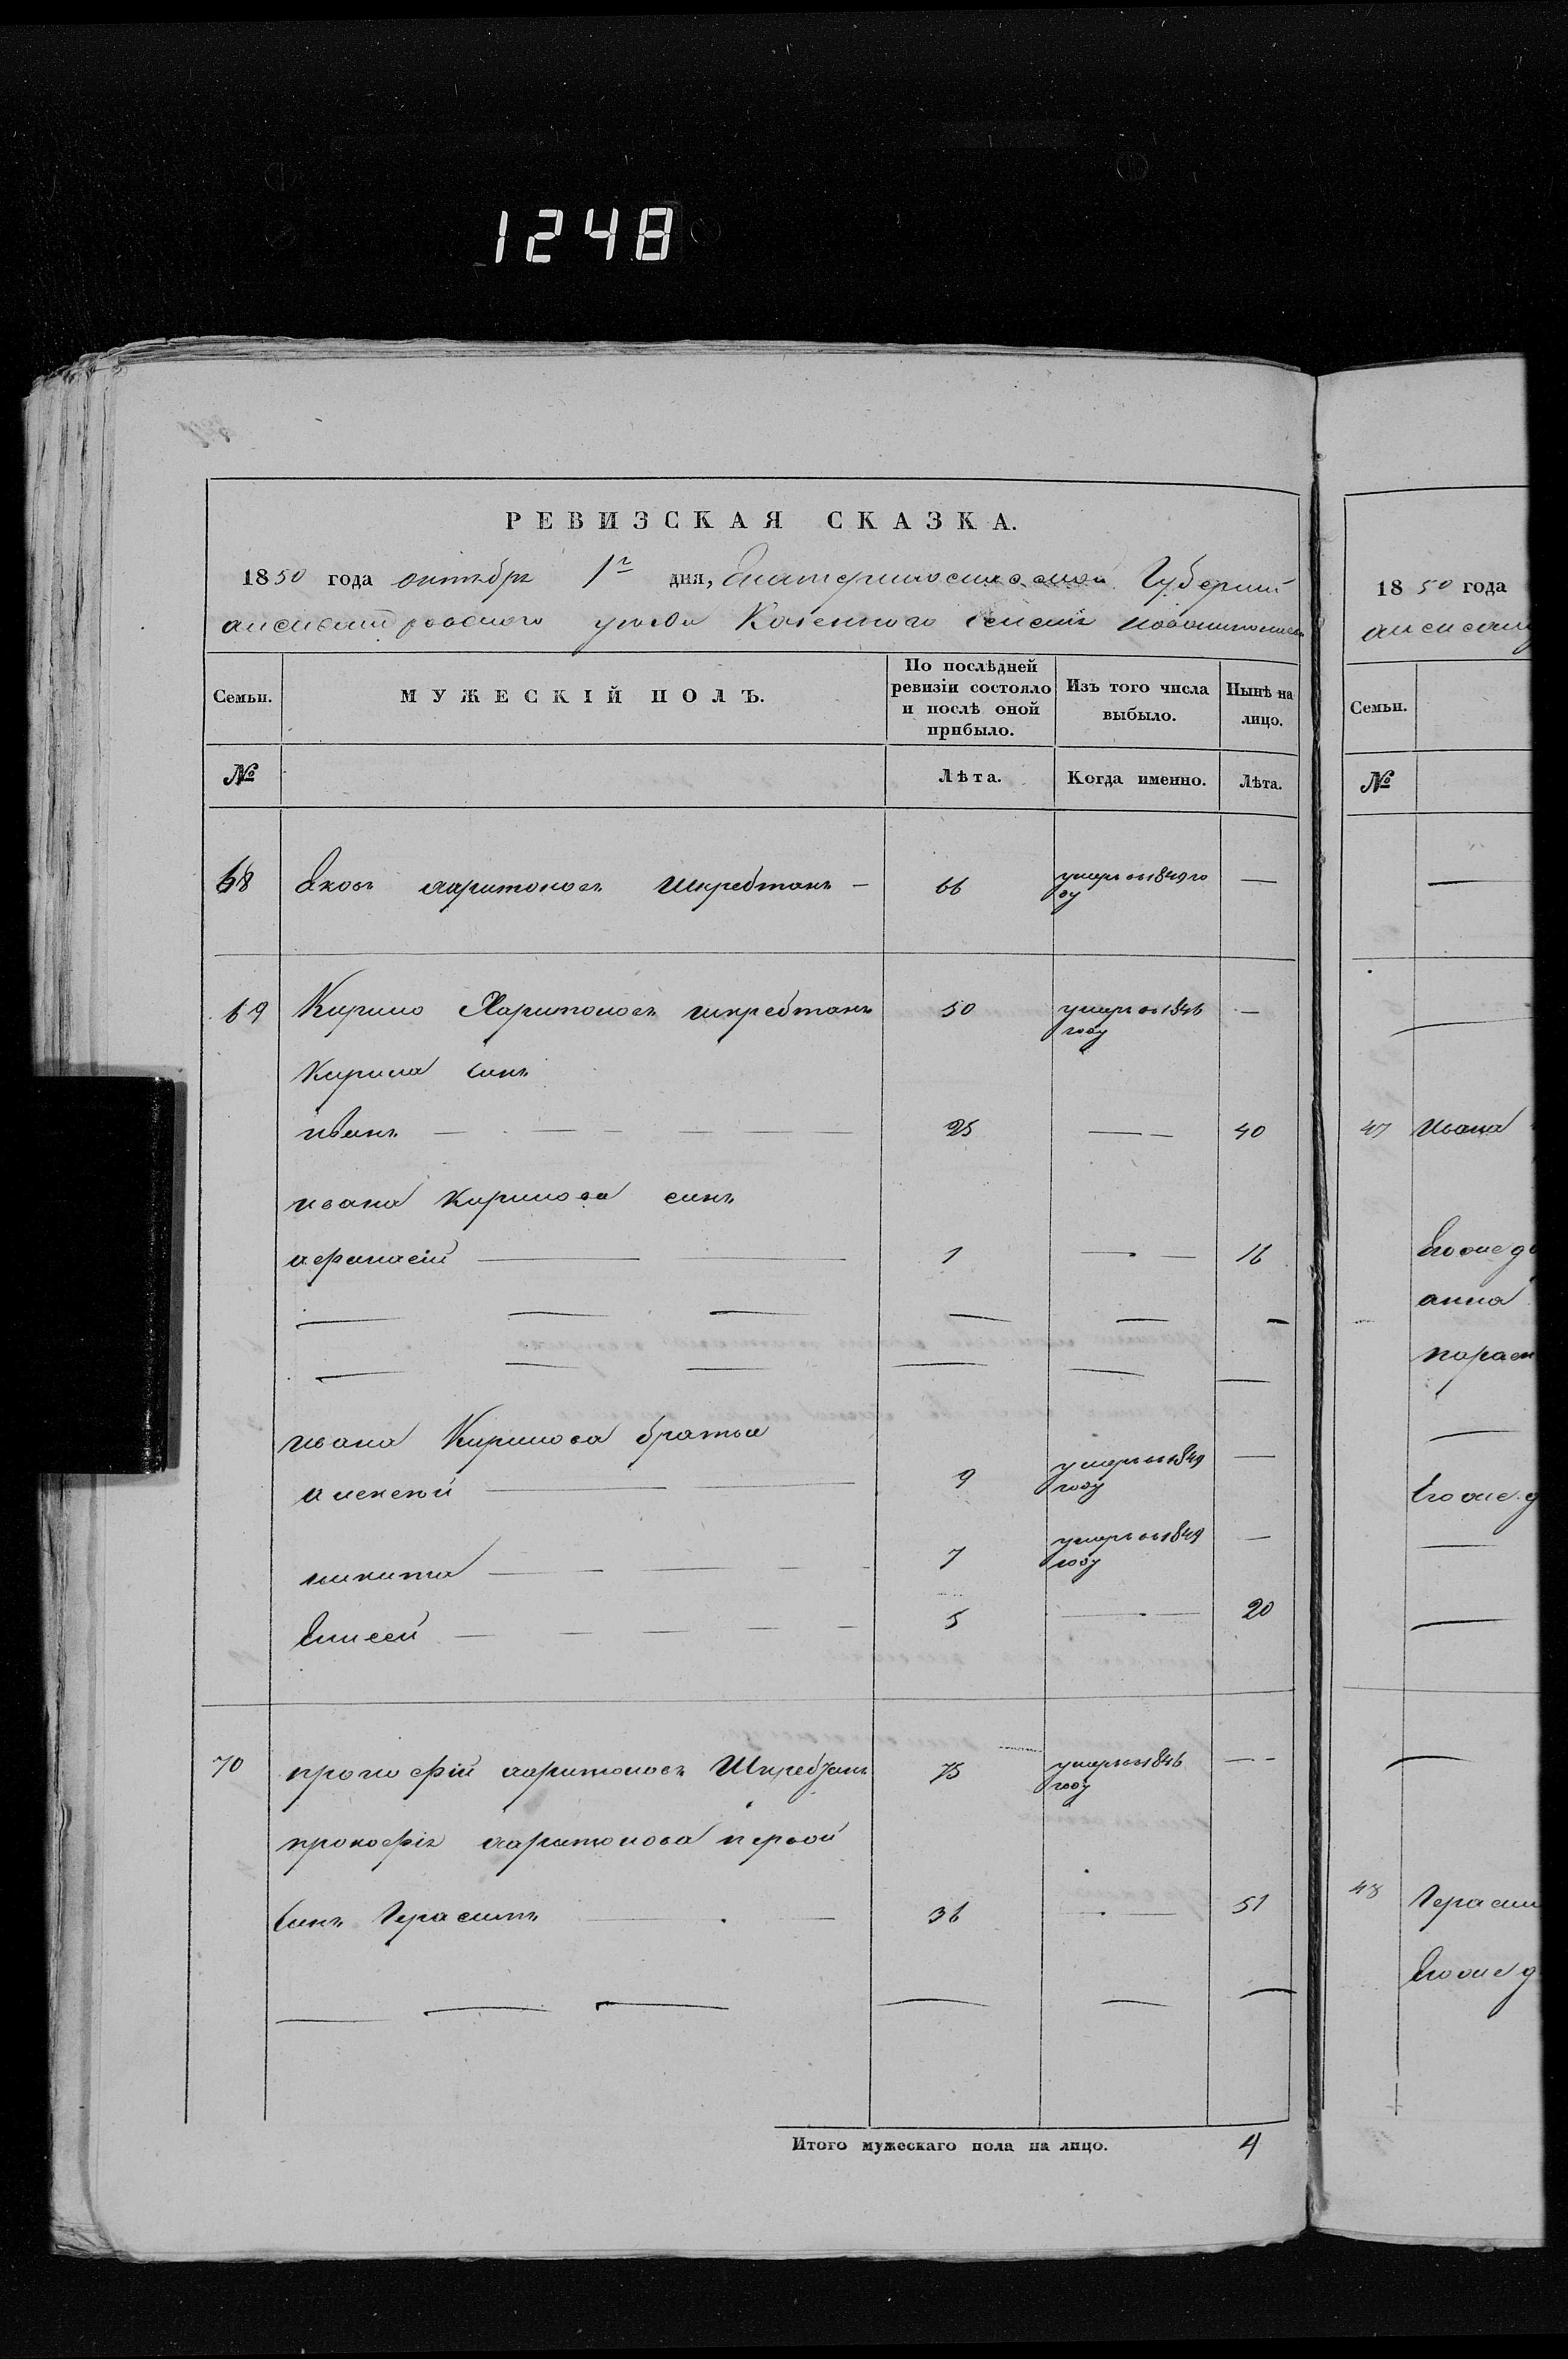 1248
РЕВИЗСКАЯ СКАЗКА.
1850 года октября 1го дня, Екатеринославской Губернии
александровского уезда Казенного селения
Семьи. МУЖЕСКІЙ ПОЛЪ. По послѣдней ревизіи состояло и послѣ оной прибыло. Изъ того числа выбыло. Нынѣ на лицо.
№ Лѣта. Когда именно. Лѣта.
68 Яковъ харитоновъ Шкребтанъ — 66 умеръ въ 1849 го ду —
69 Кирило Харитоновъ шкребтанъ 50 умеръ въ 1846 году —
Кирила синъ
иванъ — — — — — — 25 — — 40
ивана Кирилова синъ
афанасий — — 1 — — 16
ивана Кирилова братья
алексей — — 9 умеръ въ 1849 году —
никита — — — — 7 умеръ въ 1849 году —
Елисей — — — — — 5 — — 20
70 прокофий харитоновъ Шкребтанъ 75 умеръ въ 1846 году — -
прокофія харитонова первой
синъ Герасимъ — — 36 — — 51
Итого мужескаго пола на лицо. 4
1850 года
Семьи.
№
47 Ивана
анна
48